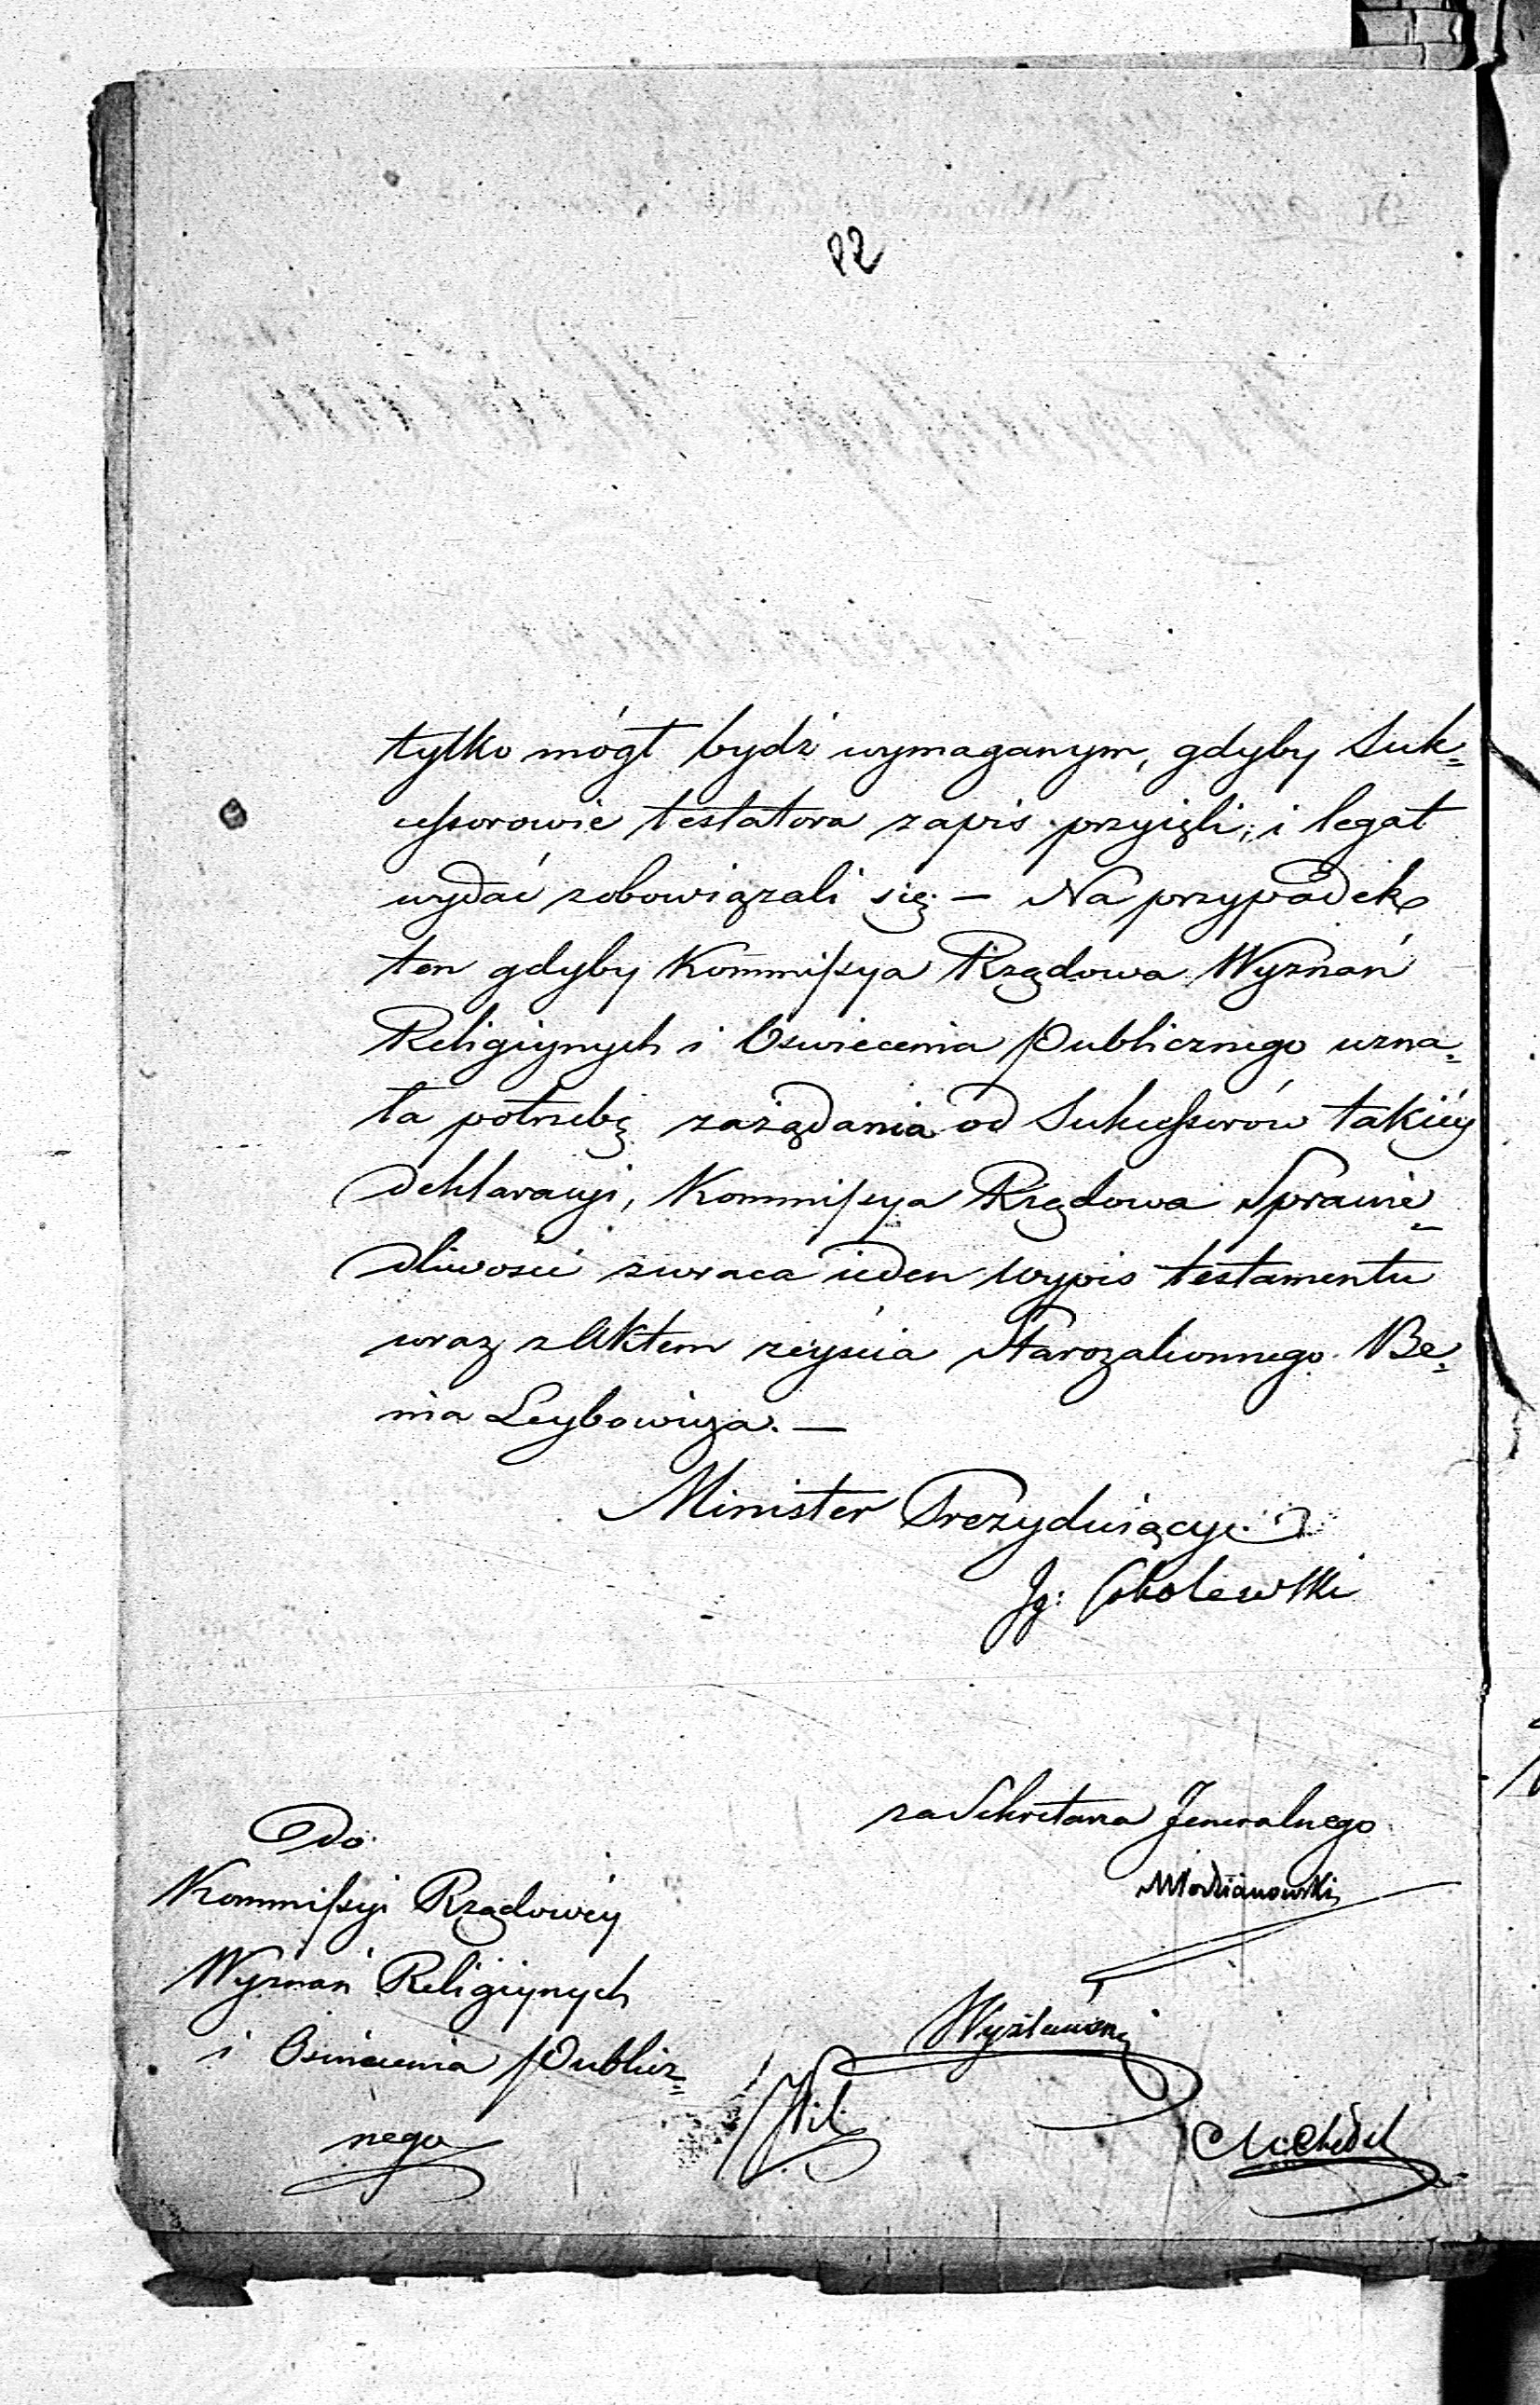 22
tylko mógł bydź wymaganym, gdyby Suk=
cessorowie testatora zapis przyięli, i legat
wydać zobowiązali się. — Na przypadek
ten gdyby Kommissya Rządowa Wyznań
Religiynych i Oswiecenia Publicznego uzna=
ła potrzebę zażądania od Sukcessorów takiéy
deklaracyi, Kommissya Rządowa Sprawie=
dliwości zwraca ieden wypis testamentu
wraz z Aktem zeyścia Starozakonnego Be=
nia Leybowicza. —
Minister Prezyduiący
Jg: Sobolewski
za Sekretarza Jeneralnego
Młodzianowski
Do
Kommissyi Rządowéy
Wyznań Religiynych
i Oswiecenia Publicz=
nego